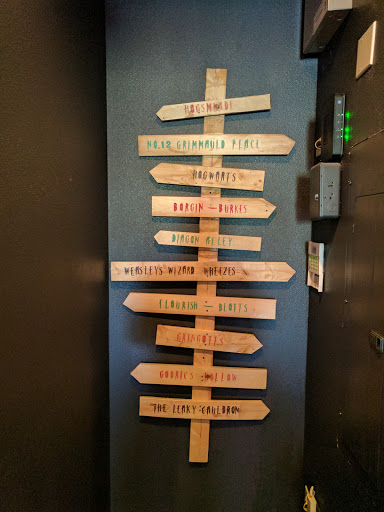 HOGSMEADE
NO.12 GRIMMAULD PLACE
HOGWARTS
BORGIN - BURKES
DIAGON ALLEY
WEASLEYS' WIZARD WHEEZES
FLOURISH - BLOTTS
GRINGOTTS
GODRICS HOLLOW
THE LEAKY CAULDRON